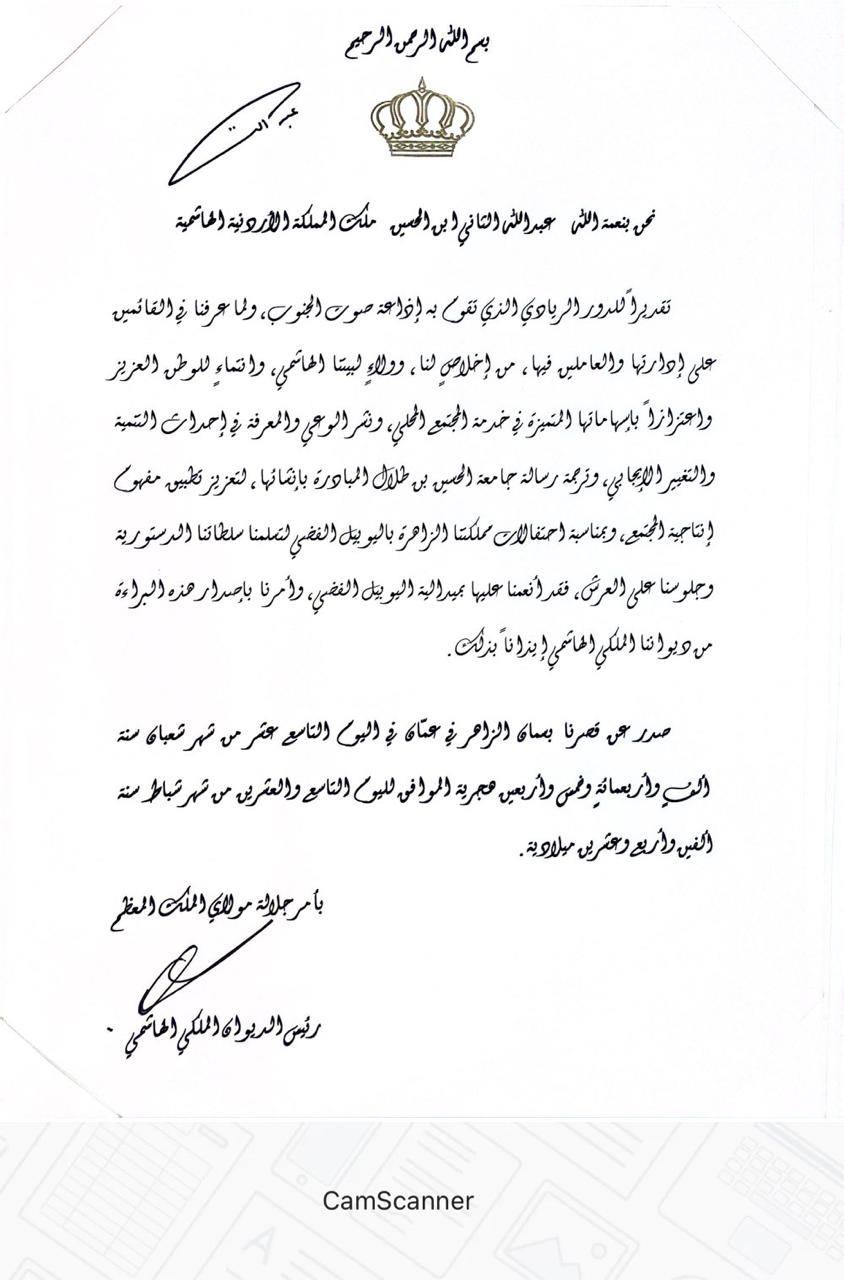 بسم الله الرحمن الرحيم
عبد الله
نحن بنعمة الله عبدالله الثاني ابن الحسين ملك المملكة الأردنية الهاشمية
تقديراً للدور الريادي الذي تقوم به إذاعة صوت الجنوب، ولما عرفنا في القائمين
على إدارتها والعاملين فيها، من إخلاصٍ لنا، وولاءٍ لبيتنا الهاشمي، وانتماءٍ للوطن العزيز
واعتزازاً بإسهاماتها المتميزة في خدمة المجتمع المحلي، ونشر الوعي والمعرفة في إحداث التنمية
والتغيير الإيجابي، وترجمة رسالة جامعة الحسين بن طلال المبادرة بإنشائها، لتعزيز تطبيق مفهوم
إنتاجية المجتمع، وبمناسبة احتفالات مملكتنا الزاهرة باليوبيل الفضي لتسلمنا سلطاتنا الدستورية
وجلوسنا على العرش، فقد أنعمنا عليها بميدالية اليوبيل الفضي، وأمرنا بإصدار هذه البراءة
من ديواننا الملكي الهاشمي إيذاناً بذلك.
صدر عن قصرنا بسمان الزاهر في عمّان في اليوم التاسع عشر من شهر شعبان سنة
ألفٍ وأربعمائةٍ وخمس وأربعين هجرية الموافق لليوم التاسع والعشرين من شهر شباط سنة
ألفين وأربع وعشرين ميلادية.
بأمر جلالة مولاي الملك المعظم
رئيس الديوان الملكي الهاشمي
CamScanner